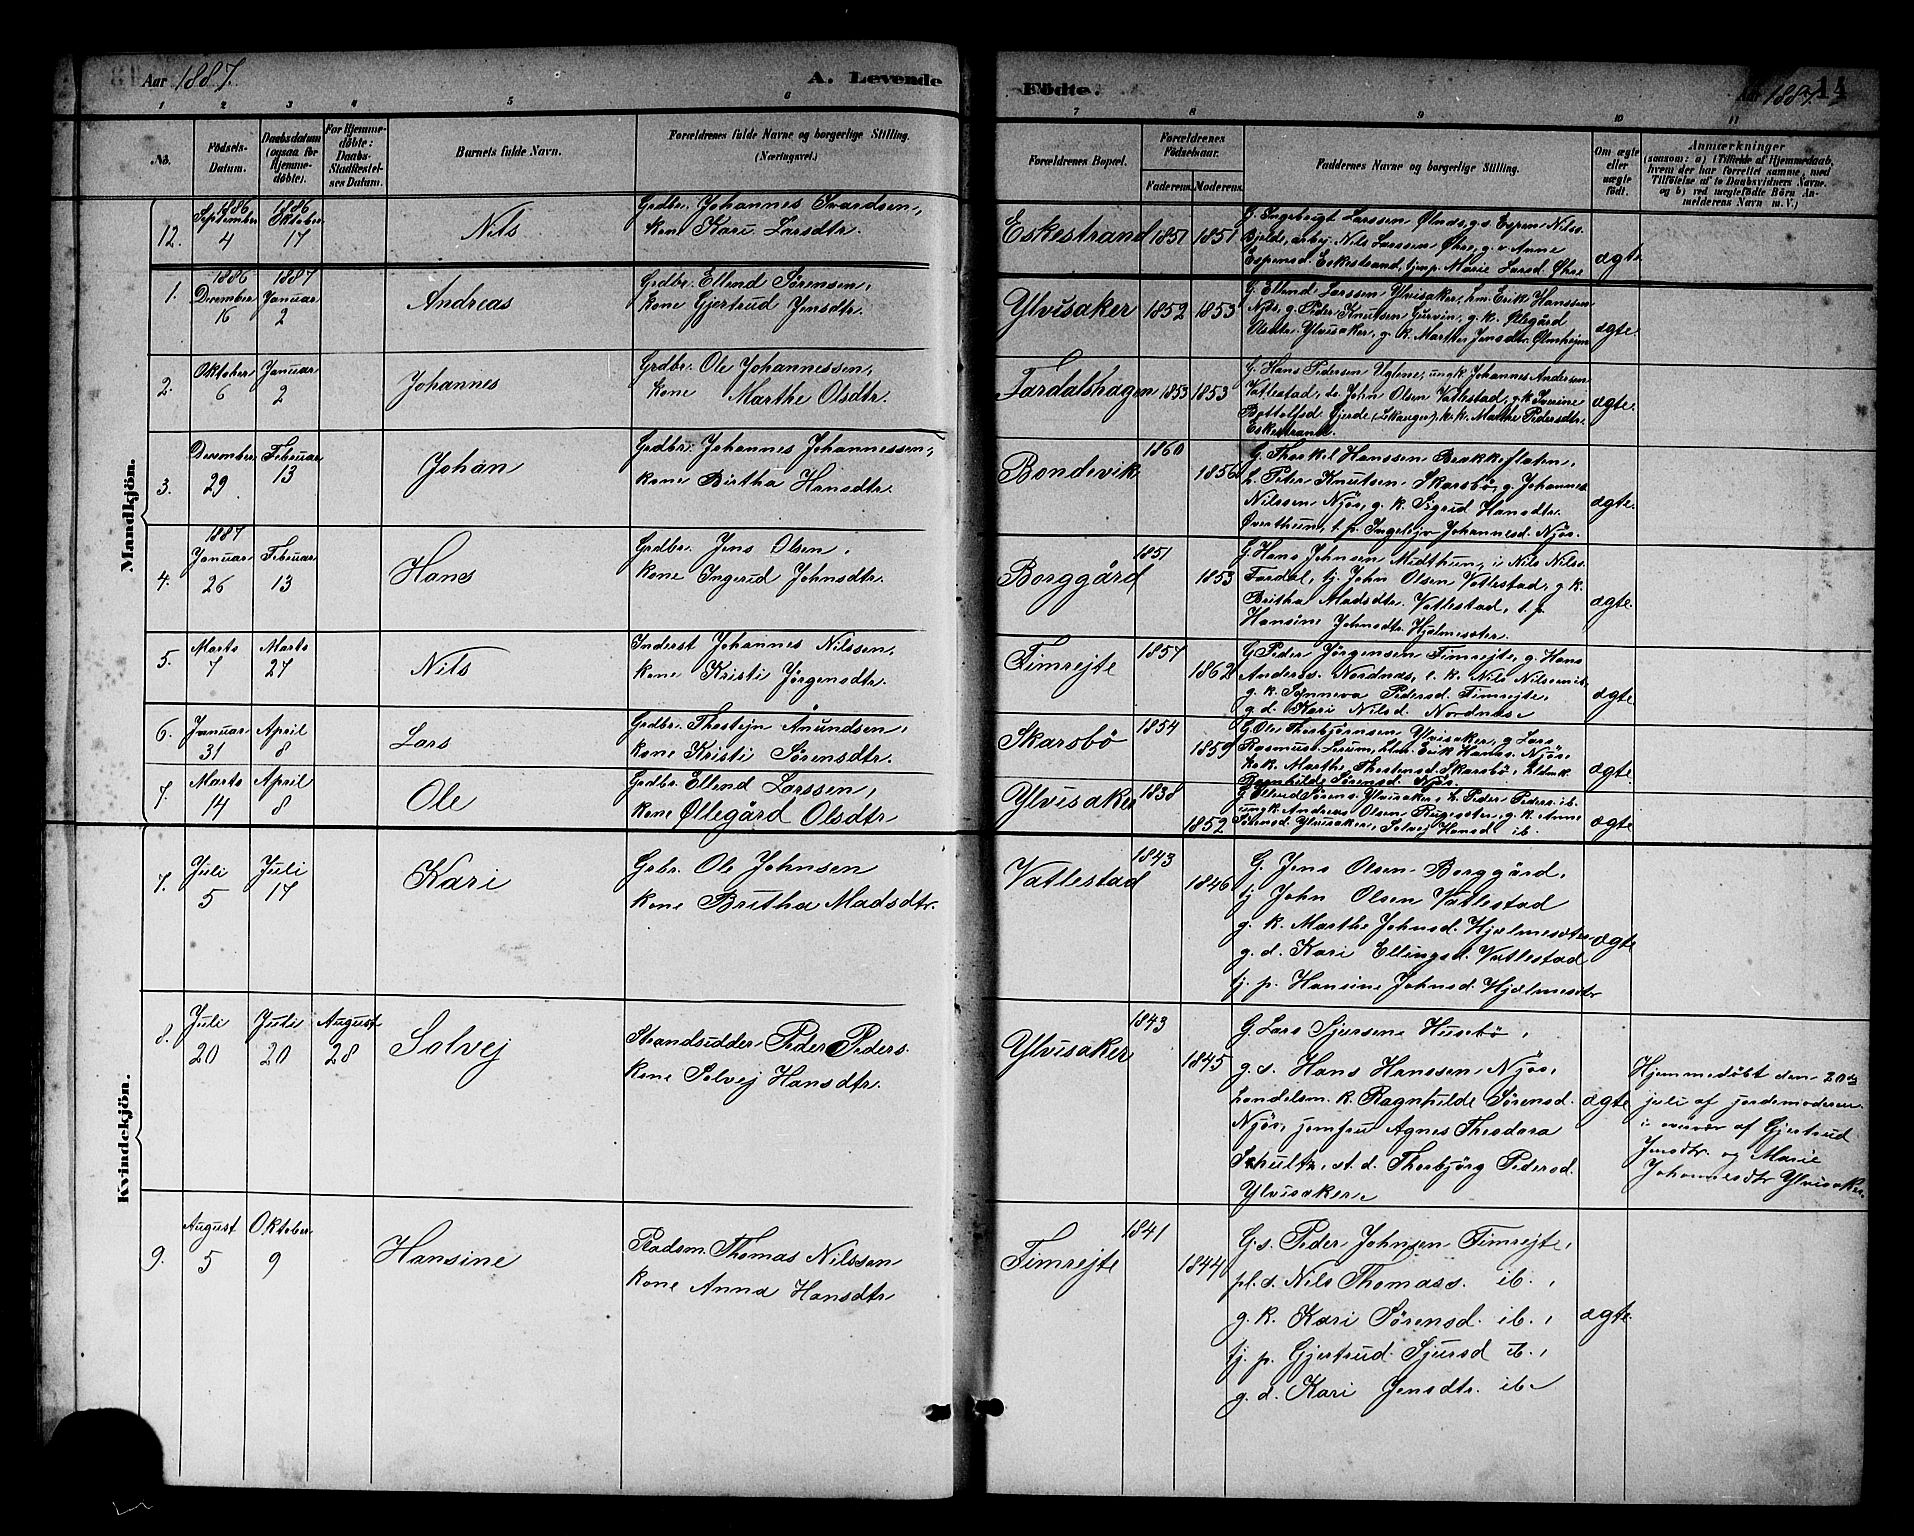 Aar 1887.
A. Levende
Födte.
Aar 1887.
14
1 2 3 4 5 6 7 8 9 10 11
No.
Födsels-Datum.
Daabsdatum (ogsaa for Hjemme-döbte).
For Hjemme-döbte: Daabs-Stadfæstel-ses Datum.
Barnets fulde Navn.
Forældrenes fulde Navne og borgerlige Stilling. (Næringsvei.)
Forældrenes Bopæl.
Forældrenes Födselsaar.
Faderens. Moderens.
Faddernes Navne og borgerlige Stilling.
Om ægte eller uægte födt.
Anmærkninger
(saasom: a) i Tilfælde af Hjemmedaab,
hvem der har forrettet samme, med
Tilföielse af to Daabsvidners Navne.
og b) ved uægtefödte Börn An-
melderens Navn m. V.)
Mandkjön.
12. 1886 September 4 1886 Oktober 17 Nils
Grdbr. Johannes Ivardsen,
kone Kari Larsdtr.
Eskestrand 1851 1851
G. Ingebrigt Larssen Ølnds, g.s Espen Nils.
Bjelde, arbej. Nils Larssen Øhre, g.v Anne
Espensd. Eskestrand, tjenp. Marie Larsd. Øhre
ægte
1. 1886 December 16 1887 Januar 2 Andreas
Grdbr. Ellend Sørensen,
kone Gjertrud Jensdtr.
Ylvisaker 1852 1853
G. Ellend Larssen Ylvisaker, hm. Erik Hanssen
Njøs, g. Peder Knutsen Gurvin, g. k. Øllegård
Olsdtr. Ylvisaker, g. k. Marthe Jensdtr. Ølmhejm
ægte
2. Oktober 6 Januar 2 Johannes
Grdbr. Ole Johannessen,
kone Marthe Olsdtr.
Fardalshagen 1853 1853
G. Hans Pedersen Uglene, ungk. Johannes Andersen
Vatlestad, do. John Olsen Vatlestad, g. k. Severine
Bottolfsd. Gjerde (Skauger), k. k. Marthe Pedersdtr.
Eskestrand.
ægte.
3. December 29 Februar 13 Johan
Grdbr. Johannes Johannessen,
kone Birtha Hansdtr.
Bondevik 1860 1856
G. Thorkel Hanssen Brækkeflaten,
h. Peter Knutsen Skarsbø, g. Johannes
Nilssen Njøs, g. k. Sigrud Hansdtr.
Øverthun, t. p. Ingelejv Johannesd. Njøs.
ægte.
4. 1887 Januar 26 Februar 13 Hans
Grdbr. Jens Olsen,
kone Ingerid Johnsdtr.
Borggård 1851 1853
G. Hans Johnsen Midthun, i Nils Nils.
Fardal, tj. John Olsen Vatlestad, g k.
Britha Madsdtr. Vatlestad, t. p
Hansine Johnsdtr. Hjelmeseter.
ægte.
5. Marts 7 Marts 27 Nils
Inderst Johannes Nilssen,
kone Kristi Jørgensdtr.
Timrejte 1857 1862
G. Peder Jörgensen Timrejte, g. Hans
Anders. Nordnæs, e. k. Nils Nilssen ib.
g. k. Synneva Pedersd. Timrejte,
g. d. Kari Nilsd. Nordnæs
ægte
6. Januar 31 April 8 Lars
Grdbr. Thostejn Ånundsen,
kone Kristi Sörensdtr.
Skarsbö 1854 1859
G. Ole Thorbjørnsen Ylvisaker, g. Lars
Rasmus. Lerum, hm. Erik Hanss. Njøs,
k. k. Marthe Thostensd. Skarsbö,
Ragnhilde Sörensd. Njøs.
ægte.
7. Marts 14 April 8 Ole
Grdbr. Ellend Larssen,
kone Øllegård Olsdtr
Ylvisaker 1838 1852
G. Ellend Sørens. Ylvisaker, h. Peder Peders. ib.
ungk. Andreas Olsen Rugesæter, g. k. Anne
Sörensd. Ylvisaker, Solvej Hansd ib.
ægte.
Kvindekjön.
7. Juli 5 Juli 17 Kari
Grbr. Ole Johnsen
kone Britha Madsdtr.
Vatlestad 1843 1846
G. Jens Olsen Borggård,
tj John Olsen Vatlestad
g. k. Marthe Johnsd. Hjælmesæter
g. d. Kari Ellingsd. Vatlestad
tj. p. Hansine Johnsd. Hjelmesetr
ægte
8. Juli 20 Juli 20 August 28 Solvej
Strandsidder Peder Peders.
kone Solvej Hansdtr.
Ylvisaker 1843 1845
G. Lars Sjursen Husebö,
g. s. Hans Hanssen Njös,
handelsm. k. Ragnhilde Sörensd.
Njös, jomfru Agnes Theodora
Schultz, st. d. Thorbjörg Pedersd.
Ylvisaker
ægte
Hjemmedøbt den 20de
juli af jordemoderen
i overvær af Gjertrud
Jensdtr. og Marie
Johannesdtr Ylvisaker
9. August 5 Oktober 9 Hansine
Pladsm. Thomas Nilssen
kone Anna Hansdtr
Timrejte 1841 1844
G. s. Peder Johnsen Timrejte,
pl. s. Nils Thomass. ib.,
g. k. Kari Sörensd. ib.,
tj. p. Gjertrud Sjursd ib.,
g. d. Kari Jensdtr. ib.
ægte.